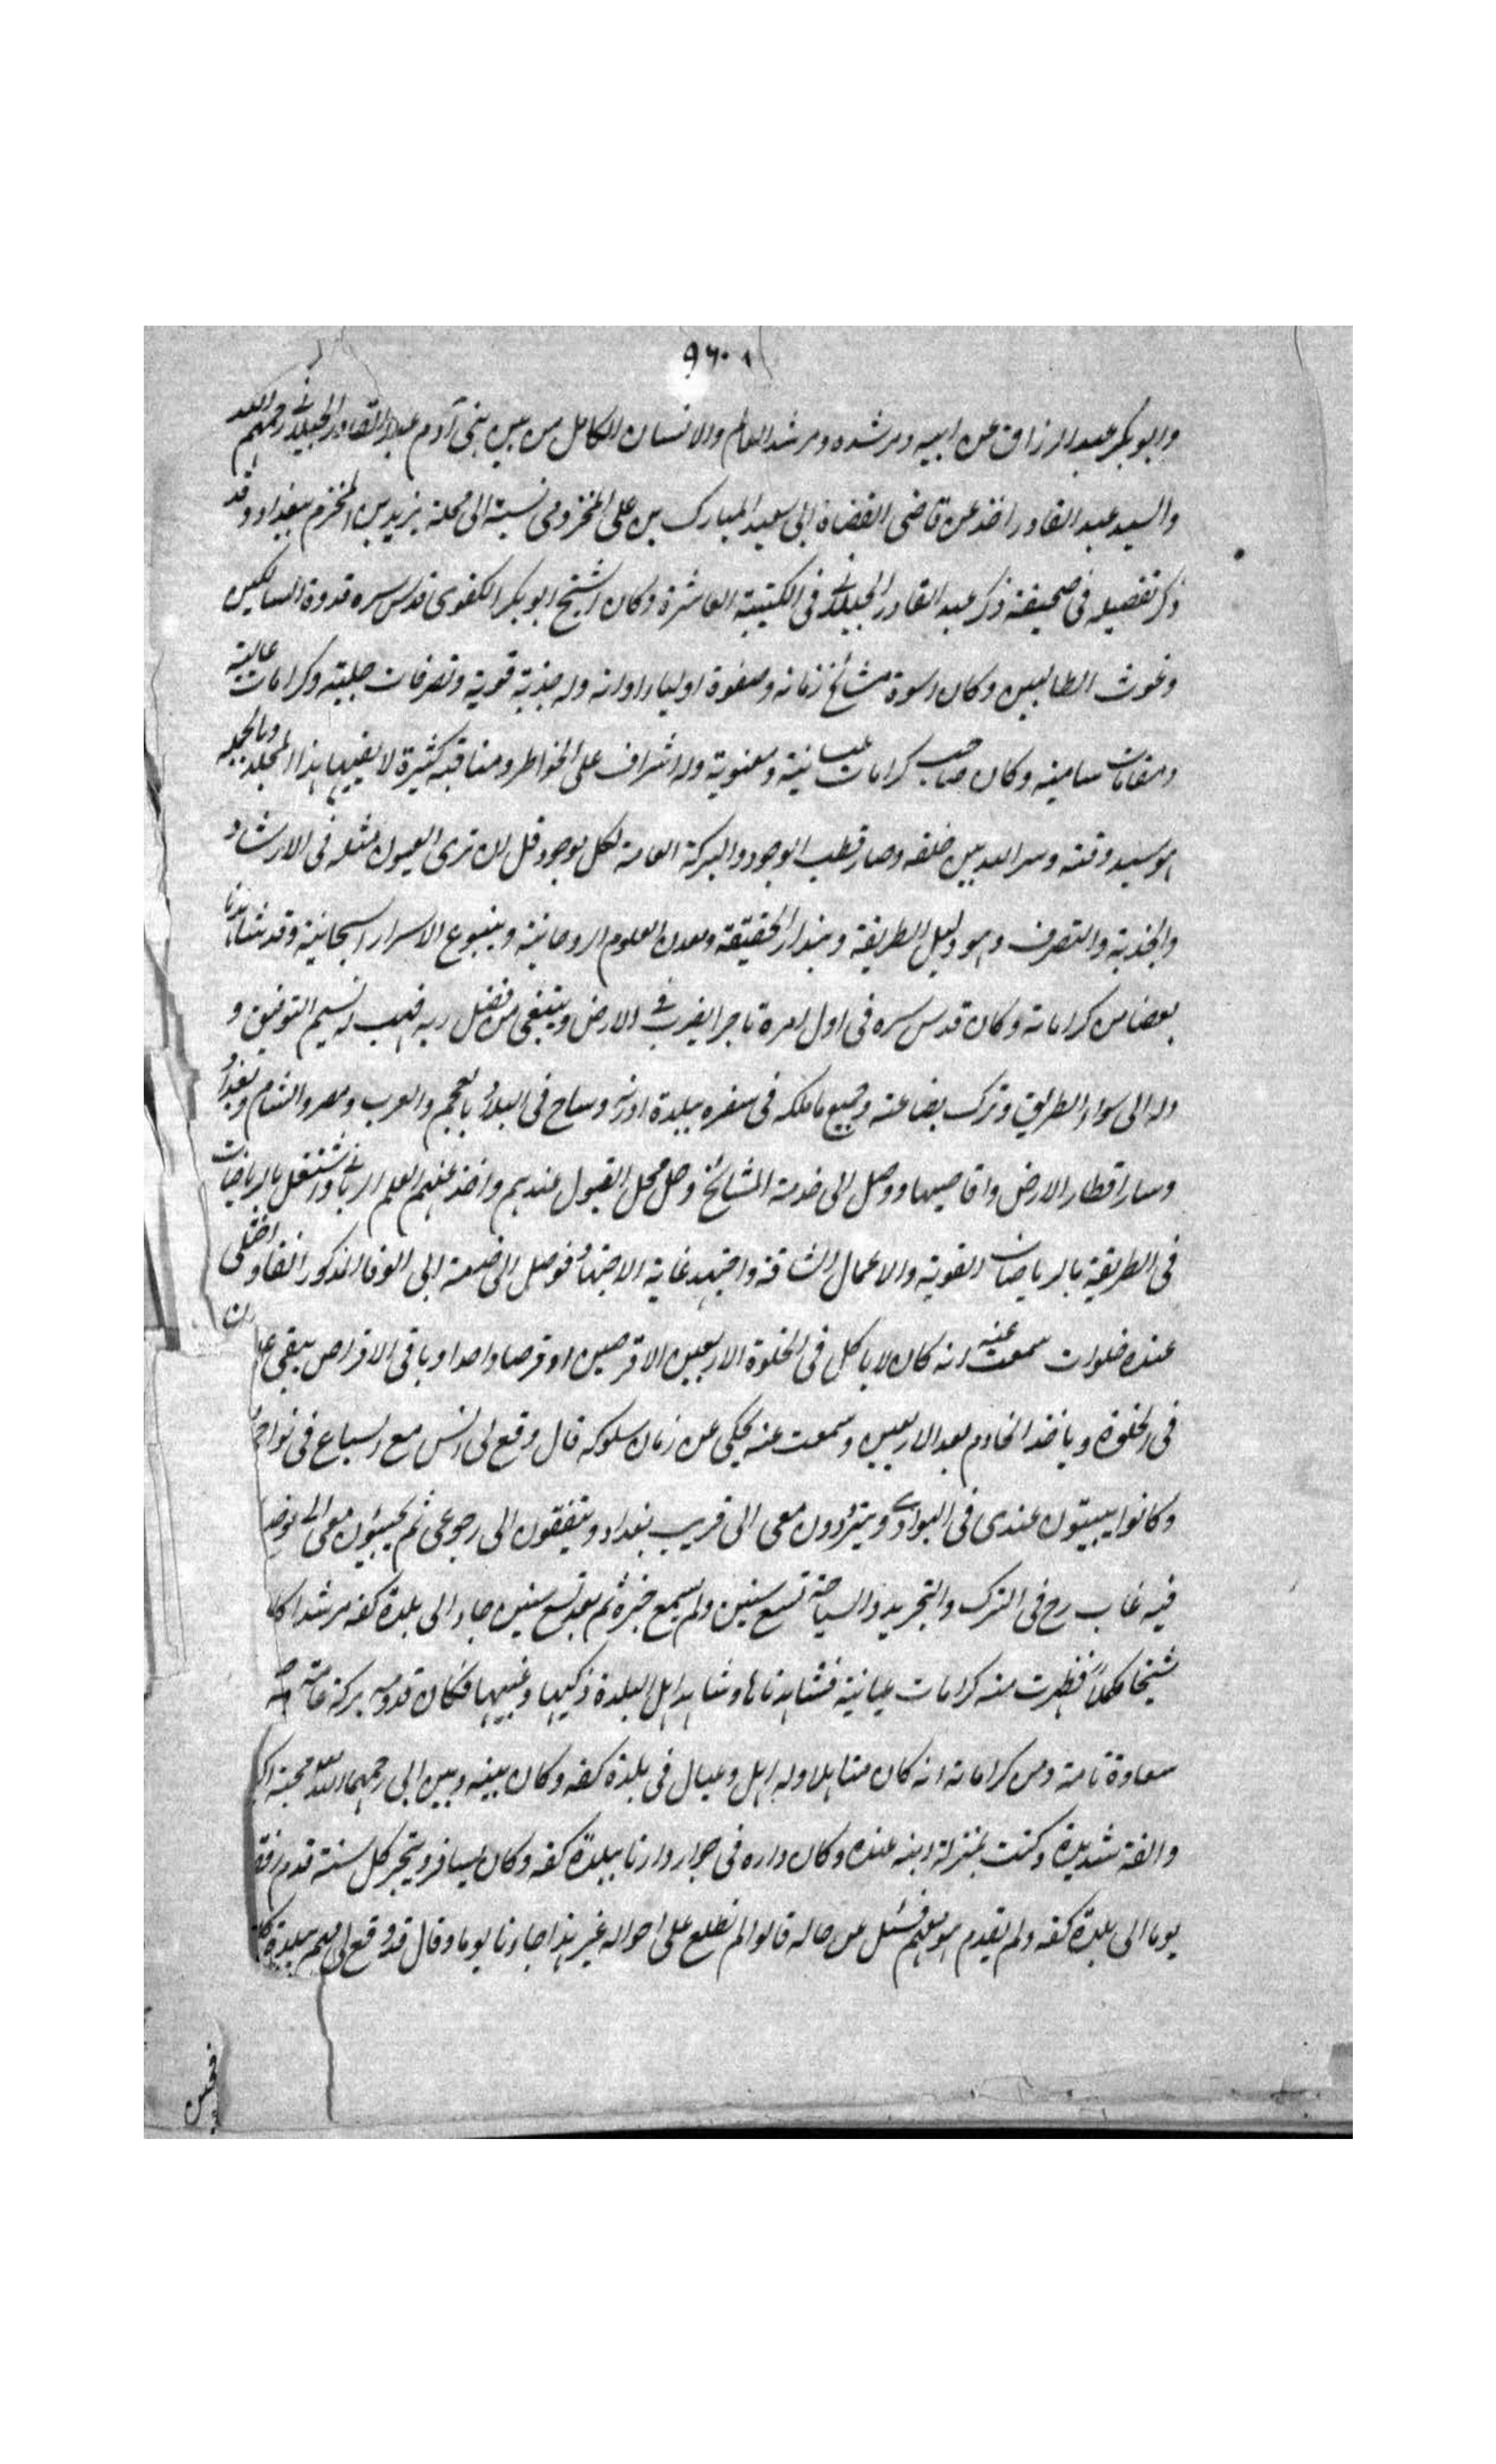 ٩٦٠
وابو بكر عبد الرزاق عن ابيه ومرشده ومرشد العالم والانسان الكامل من بين بنى آدم عبد القادر الجيلانى رحمهم الله
والسيد عبد القادر اخذ عن قاضى القضاة ابى سعيد المبارك بن على المخزومى نسبة الى محلة يزيد بن المخزم ببغداد وقد
ذكر تفصيله فى صحيفة ذكر عبد القادر الجيلانى فى الكتيبة العاشرة وكان الشيخ ابو بكر الكفوى قدس سره قدوة السالكين
وغوث الطالبين وكان اسوة مشائخ زمانه وصفوة اولياء اوانه وله جذبة قوية وتصرفات جلية وكرامات عالية
ومقامات سامية وكان صاحب كرامات عيانية ومعنوية وله اشراف على الخواطر ومناقبه كثيرة لا يفيها هذا المجلد وبالجملة
هو سيد وقته وسر الله بين خلقه وصار قطب الوجود والبركة العامة لكل موجود قل ان ترى العيون مثله فى الارشاد
والجذبة والتصرف وهو دليل الطريقة وبندار الحقيقة ومعدن العلوم الروحانية وينبوع الاسرار السبحانية وقد شاهدنا
بعضا من كراماته وكان قدس سره فى اول امره تاجرا يضرب فى الارض ويبتغى من فضل ربه فهب له نسيم التوفيق و
دله الى سواء الطريق وترك بضاعته وجميع ما ملكه فى سفره ببلدة ادرنه وساح فى البلاد بالعجم والعرب ومصر والشام وبغداد
وسار اقطار الارض واقاصيها ووصل الى خدمة المشائخ وحل محل القبول عندهم واخذ عنهم العلم الربانى واشتغل بالرياضات
فى الطريقة بالرياضات القوية والاعمال الشاقة واجتهد غاية الاجتهاد فوصل الى خدمة ابى الوفا المذكور انفا واختلى
عنده خلوات سمعت عنه انه كان لا ياكل فى الخلوة الاربعين الا قرصين او قرصا واحدا وباقى الاقراص يبقى
فى الخلوة وياخذ الخادم بعد الاربعين وسمعت عنه يحكى عن زمان سلوكه قال وقع لى انس مع السباع فى
وكانوا يبيتون عندى فى البوادى ويترددون معى الى قريب بغداد ويتفقون الى رجوعى ثم يجيؤن معى الى
فيه غاب رح فى الترك والتجريد والسياحة تسع سنين ولم يسمع خبره ثم بعد تسع سنين جاء الى بلدة كفه مرشدا
شيخا مكملا فظهرت منه كرامات عيانية فشاهدناها وشاهد اهل البلدة ذكيها وغبيها فكان قدومه بركة عامة
سعادة تامة ومن كراماته انه كان متاهلا وله اهل وعيال فى بلدة كفه وكان بينه وبين ابى رحمهما الله محبة
والفة شديدة وكنت بمنزلة ابنه عنده وكان داره فى جوار دارنا ببلدة كفه وكان يسافر ويتجر كل سنة قدم
يوما الى بلدة كفه ولم يقدم هو معهم فسئل عن حاله قالوا لم نطلع على احواله غير هذا جاءنا يوما وقال قد وقع لى مهم ببلدة